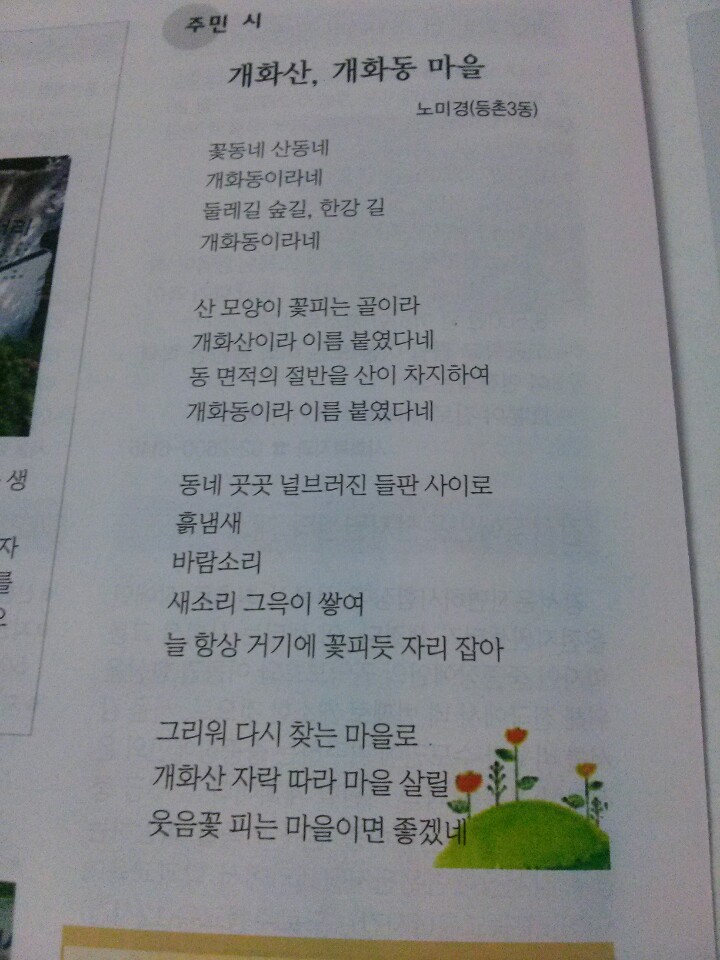 주민 시
개화산, 개화동 마을
노미경(등촌3동)
꽃동네 산동네
개화동이라네
둘레길 숲길, 한강 길
개화동이라네
산 모양이 꽃피는 골이라
개화산이라 이름 붙였다네
동 면적의 절반을 산이 차지하여
개화동이라 이름 붙였다네
동네 곳곳 널브러진 들판 사이로
흙냄새
바람소리
새소리 그윽이 쌓여
늘 항상 거기에 꽃피듯 자리 잡아
그리워 다시 찾는 마을로
개화산 자락 따라 마을 살릴
웃음꽃 피는 마을이면 좋겠네
생
자
를